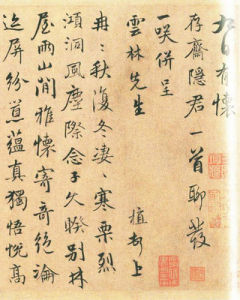 九日有懷
存齋隱君一首聊發
一咲併呈
雲林先生
植頓上
冉冉秋復冬淒淒寒栗烈
澒洞風塵際念子久暌別林
屋兩山間雅懷寄奇絕淪
迹屏紛
蘊真獨悟悅高